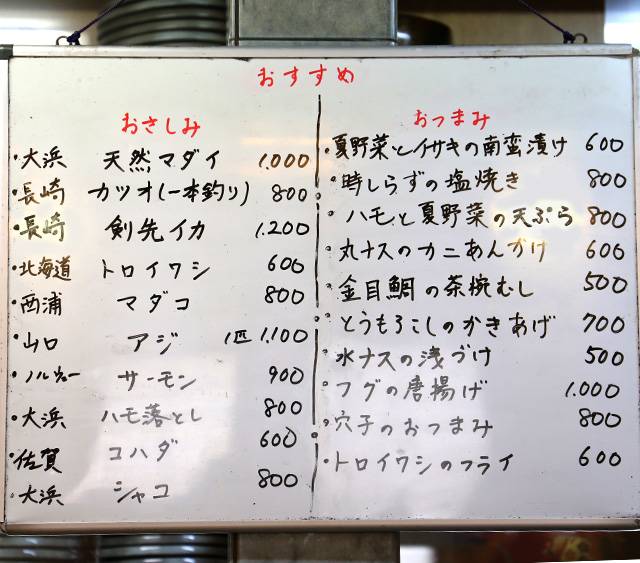 おすすめ
おさしみ
・大浜 天然マダイ 1.000
・長崎 カツオ(一本釣り) 800
・長崎 剣先イカ 1.200
・北海道 トロイワシ 600
・西浦 マダコ 800
・山口 アジ 1匹 1.100
・ノルウェー サーモン 900
・大浜 ハモ落とし 800
・佐賀 コハダ 600
・大浜 シャコ 800
おつまみ
・夏野菜とイサキの南蛮漬け 600
・時しらずの塩焼き 800
・ハモと夏野菜の天ぷら 800
・丸ナスのカニあんかけ 600
・金目鯛の茶椀むし 500
・とうもろこしのかきあげ 700
・水ナスの浅づけ 500
・フグの唐揚げ 1.000
・穴子のおつまみ 800
・トロイワシのフライ 600